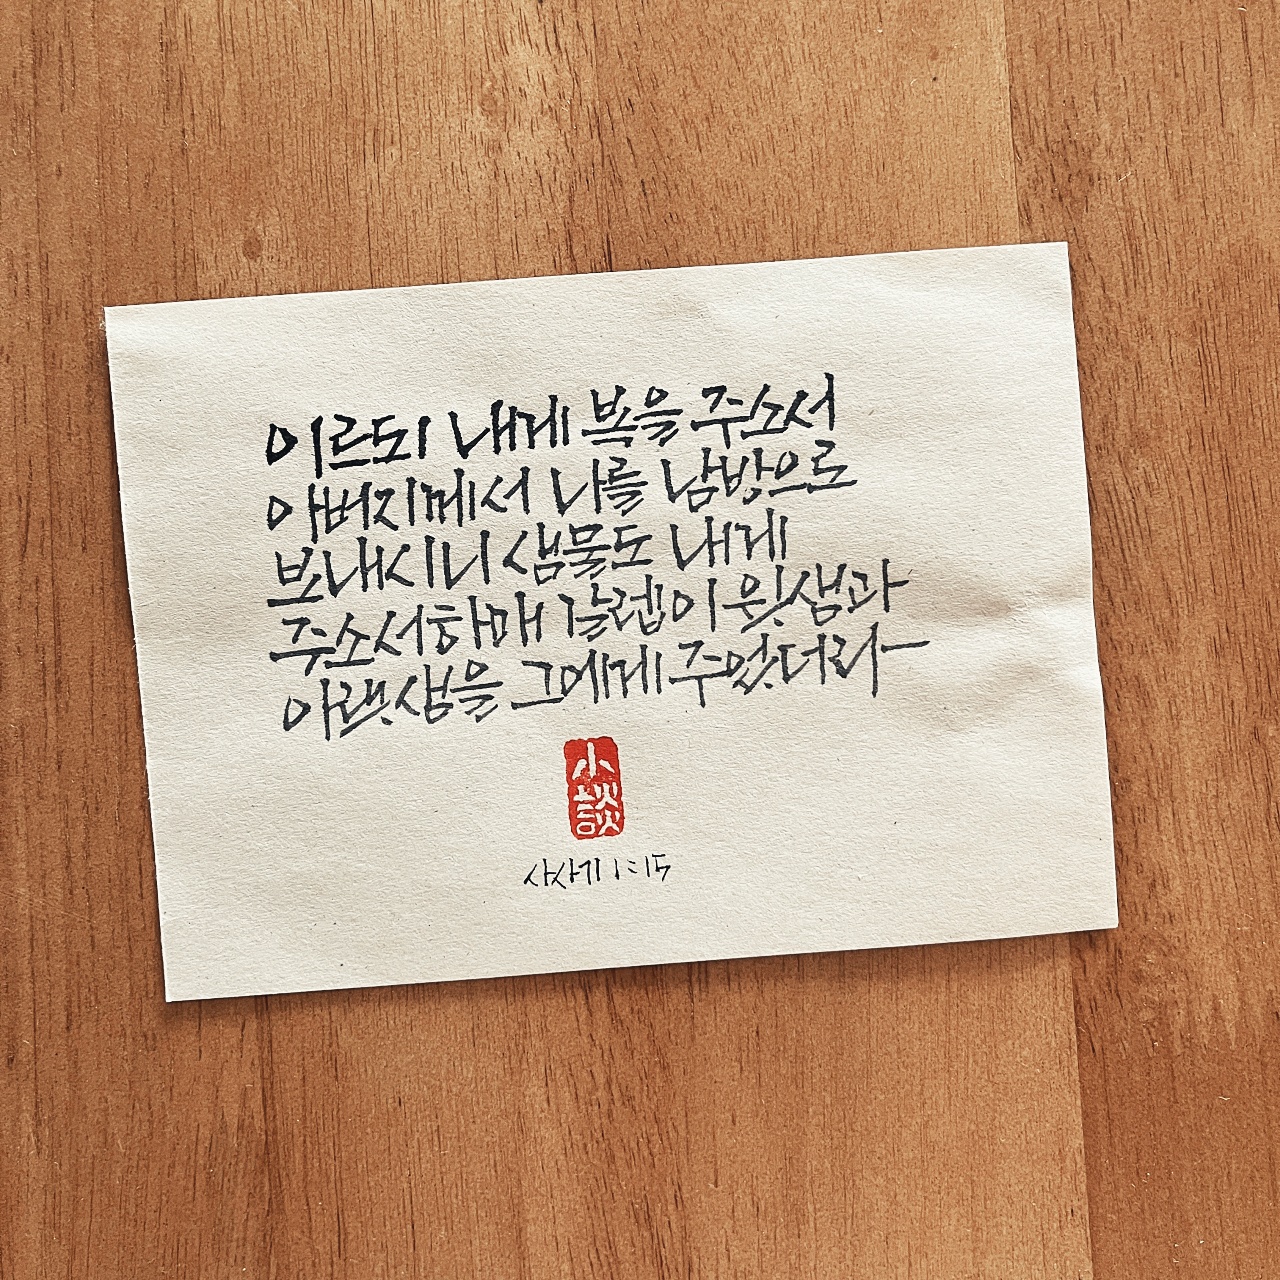 이르되 내게 복을 주소서
아버지께서 나를 남방으로
보내시니 샘물도 내게
주소서하매 갈렙이 윗샘과
아랫샘을 그에게 주었더라
小
談
사사기 1:15